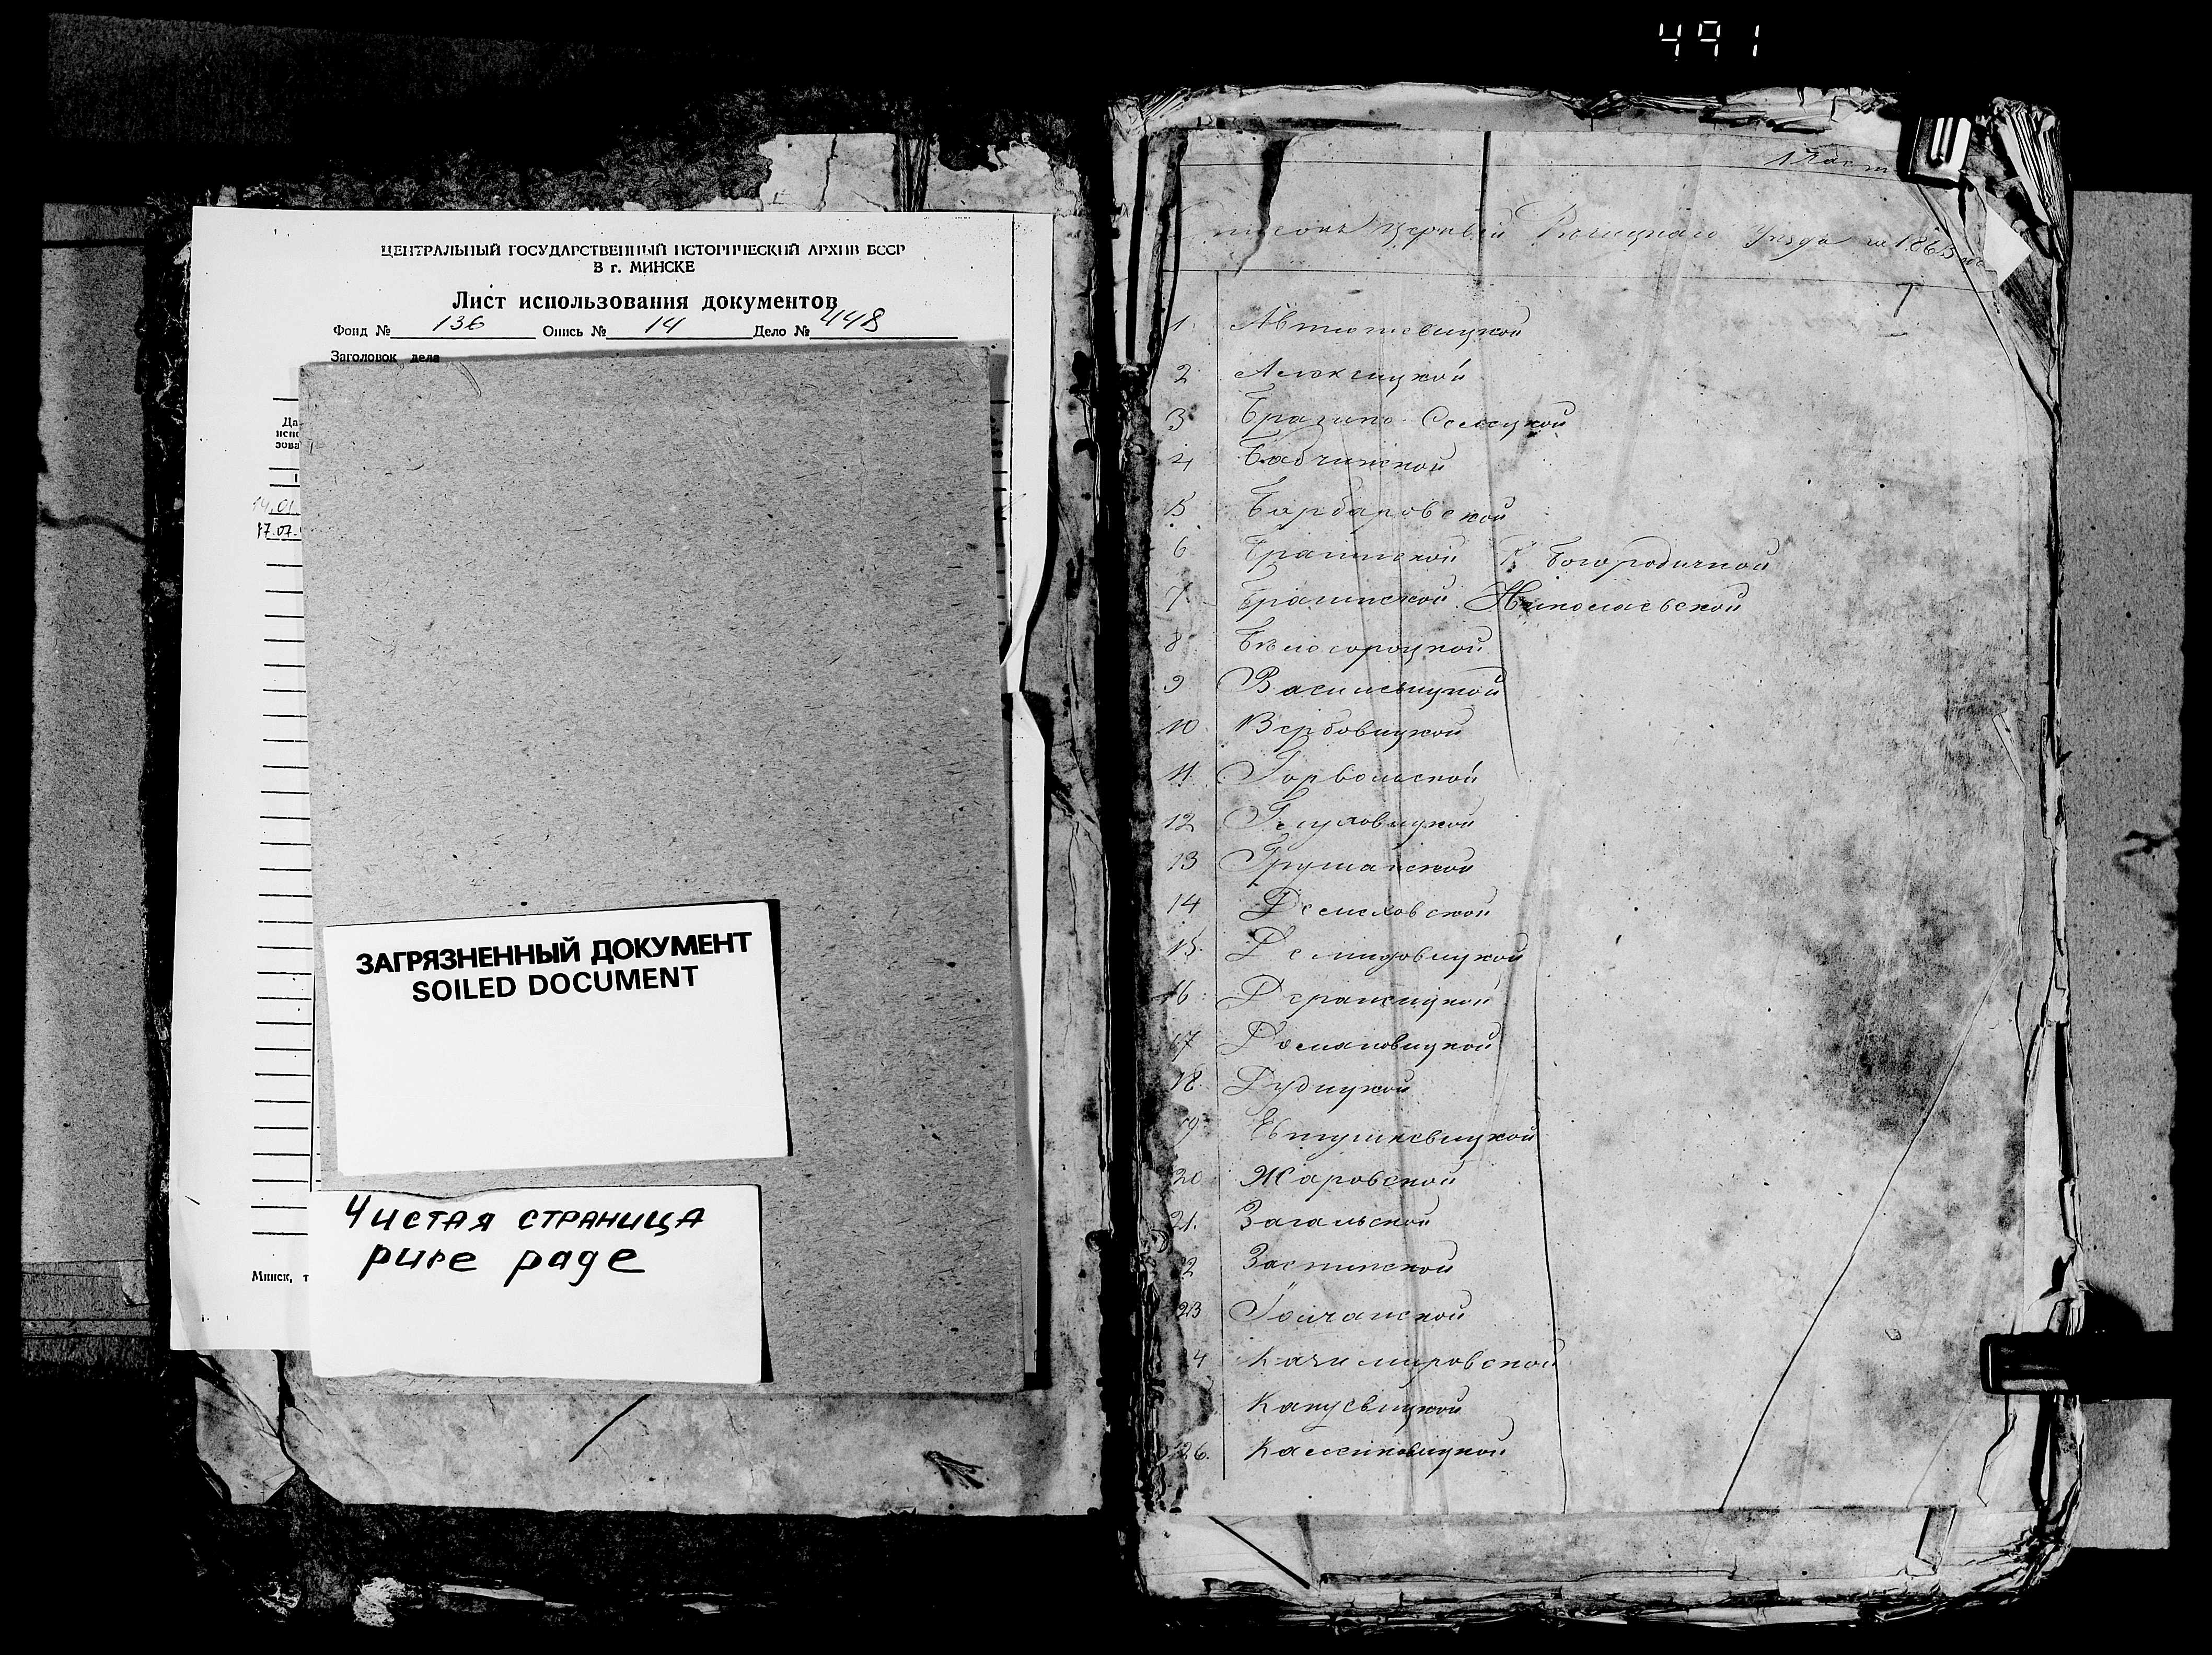 491
ЦЕНТРАЛЬНЫЙ ГОСУДАРСТВЕННЫЙ ИСТОРИЧЕСКИЙ АРХИВ БССР
В г. МИНСКЕ
Лист использования документов
Фонд № 136 Опись № 14 Дело № 448
Заголовок дела
Да
испо
зова
1
14.01
17.07.
ЗАГРЯЗНЕННЫЙ ДОКУМЕНТ
SOILED DOCUMENT
Чистая страница
pure page
Минск, т
1 Част
Списокъ Церквей Речицкаго Уезда за 1865 год
1. Автютевицкой
2 Алексицкой
3 Бразино Селецкой
4 Бабчинской
5 Барбаровской
6 Брагинской Р. Богородичной
7 Брагинской Николаевской
8 Белосороцкой
9 Василевицкой
10 Вербовицкой
11. Горвольской
12 Глуховицкой
13 Грушанской
14 Демеховской
15. Демидовицкой
16 Деражицкой
17 Домановицкой
18. Дудицкой
19 Евтушкевицкой
20 Жаровской
21. Загальской
2 Заспинской
23 Голчанской
24 Казимировской
Капусвицкой
26. Каленковицкой